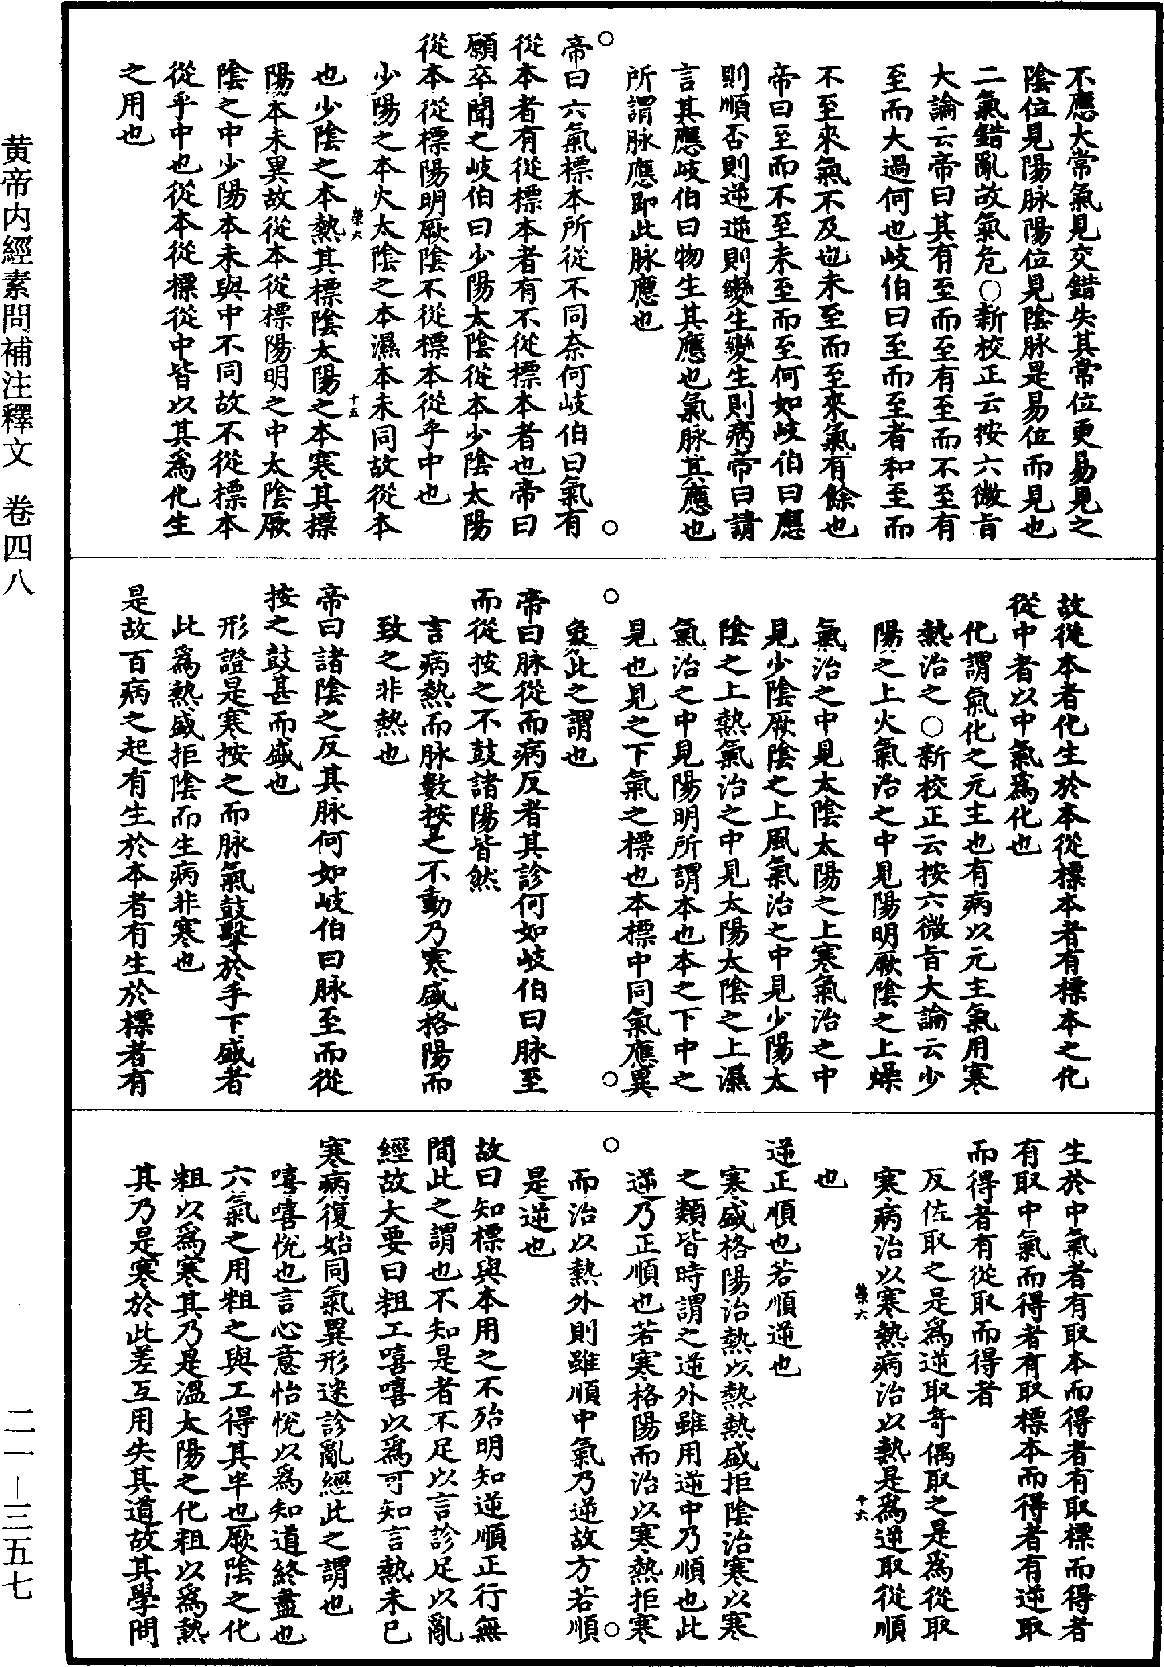 黃帝內經素問補注釋文 卷四八
二一—三五七
不應大常氣見交錯失其常位更易見之
陰位見陽脉陽位見陰脉是易位而見也
二氣錯亂故氣危○新校正云按六微旨
大論云帝曰其有至而至有至而不至有
至而大過何也岐伯曰至而至者和至而
不至來氣不及也未至而至來氣有餘也
帝曰至而不至未至而至何如岐伯曰應
則順否則逆逆則變生變生則病帝曰請
言其應岐伯曰物生其應也氣脉其應也
所謂脉應即此脉應也
○ ○
帝曰六氣標本所從不同奈何岐伯曰氣有
從本者有從標本者有不從標本者也帝曰
願卒聞之岐伯曰少陽太陰從本少陰太陽
從本從標陽明厥陰不從標本從乎中也
少陽之本火太陰之本濕本末同故從本
榮六 十五
也少陰之本熱其標陰太陽之本寒其標
陽本末異故從本從標陽明之中太陰厥
陰之中少陽本末與中不同故不從標本
從乎中也從本從標從中皆以其為化生
之用也
故從本者化生於本從標本者有標本之化
從中者以中氣為化也
化謂氣化之元主也有病以元主氣用寒
熱治之○新校正云按六微旨大論云少
陽之上火氣治之中見陽明厥陰之上燥
氣治之中見太陰太陽之上寒氣治之中
見少陰厥陰之上風氣治之中見少陽太
陰之上熱氣治之中見太陽太陰之上濕
氣治之中見陽明所謂本也本之下中之
見也見之下氣之標也本標中同氣應異
○ ○
象此之謂也
帝曰脉從而病反者其診何如岐伯曰脉至
而從按之不鼓諸陽皆然
言病熱而脉數按之不動乃寒盛格陽而
致之非熱也
帝曰諸陰之反其脉何如岐伯曰脉至而從
按之鼓甚而盛也
形證是寒按之而脉氣鼓擊於手下盛者
此為熱盛拒陰而生病非寒也
是故百病之起有生於本者有生於標者有
生於中氣者有取本而得者有取標而得者
有取中氣而得者有取標本而得者有逆取
而得者有從取而得者
反佐取之是為逆取奇偶取之是為從取
寒病治以寒熱病治以熱是為逆取從順
榮六 十六
也
逆正順也若順逆也
寒盛格陽治熱以熱熱盛拒陰治寒以寒
之類皆時謂之逆外雖用逆中乃順也此
逆乃正順也若寒格陽而治以寒熱拒寒
○ ○
而治以熱外則雖順中氣乃逆故方若順
是逆也
故曰知標與本用之不殆明知逆順正行無
間此之謂也不知是者不足以言診足以亂
經故大要曰粗工嘻嘻以為可知言熱未已
寒病復始同氣異形迷診亂經此之謂也
嘻嘻悅也言心意怡悅以為知道終盡也
六氣之用粗之與工得其半也厥陰之化
粗以為寒其乃是溫太陽之化粗以為熱
其乃是寒於此差互用失其道故其學問